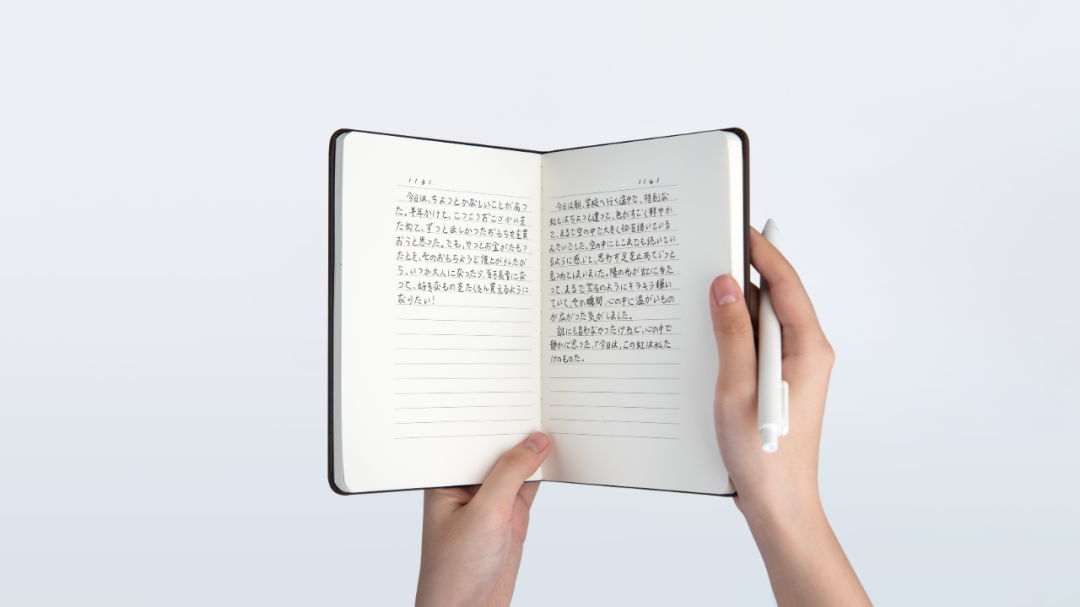 1131
今日は、ちょっとかなしいことがあっ
た。半年かけて、こつこつおこづかいをた
めて、ずっとほしかったおもちゃを買
おうと思った。でも、やっとお金がたまっ
たとき、そのおもちゃうど値上がりしたか
ら、いつか大人になったら、百万長者にな
って、好きなものをたくさん買えるように
なりたい!
1141
今日は朝、学校へ行く途中で、特別な
虹とはちょっと違って、色がすごく鮮やか
て、まるで空の中で大きく絵を描いている
みたいでした。空の中にどこまでも続いてい
るように感じて、思わず足を止めてじっと
見つめてしまいました。陽の光が虹に当た
って、まるで宝石のようにキラキラ輝い
ていて、その瞬間、心の中に温かいもの
が広がった気がしました。
誰にも言わなかったけれど、心の中で
静かに思った。「今日は、この虹は私た
けのものた。